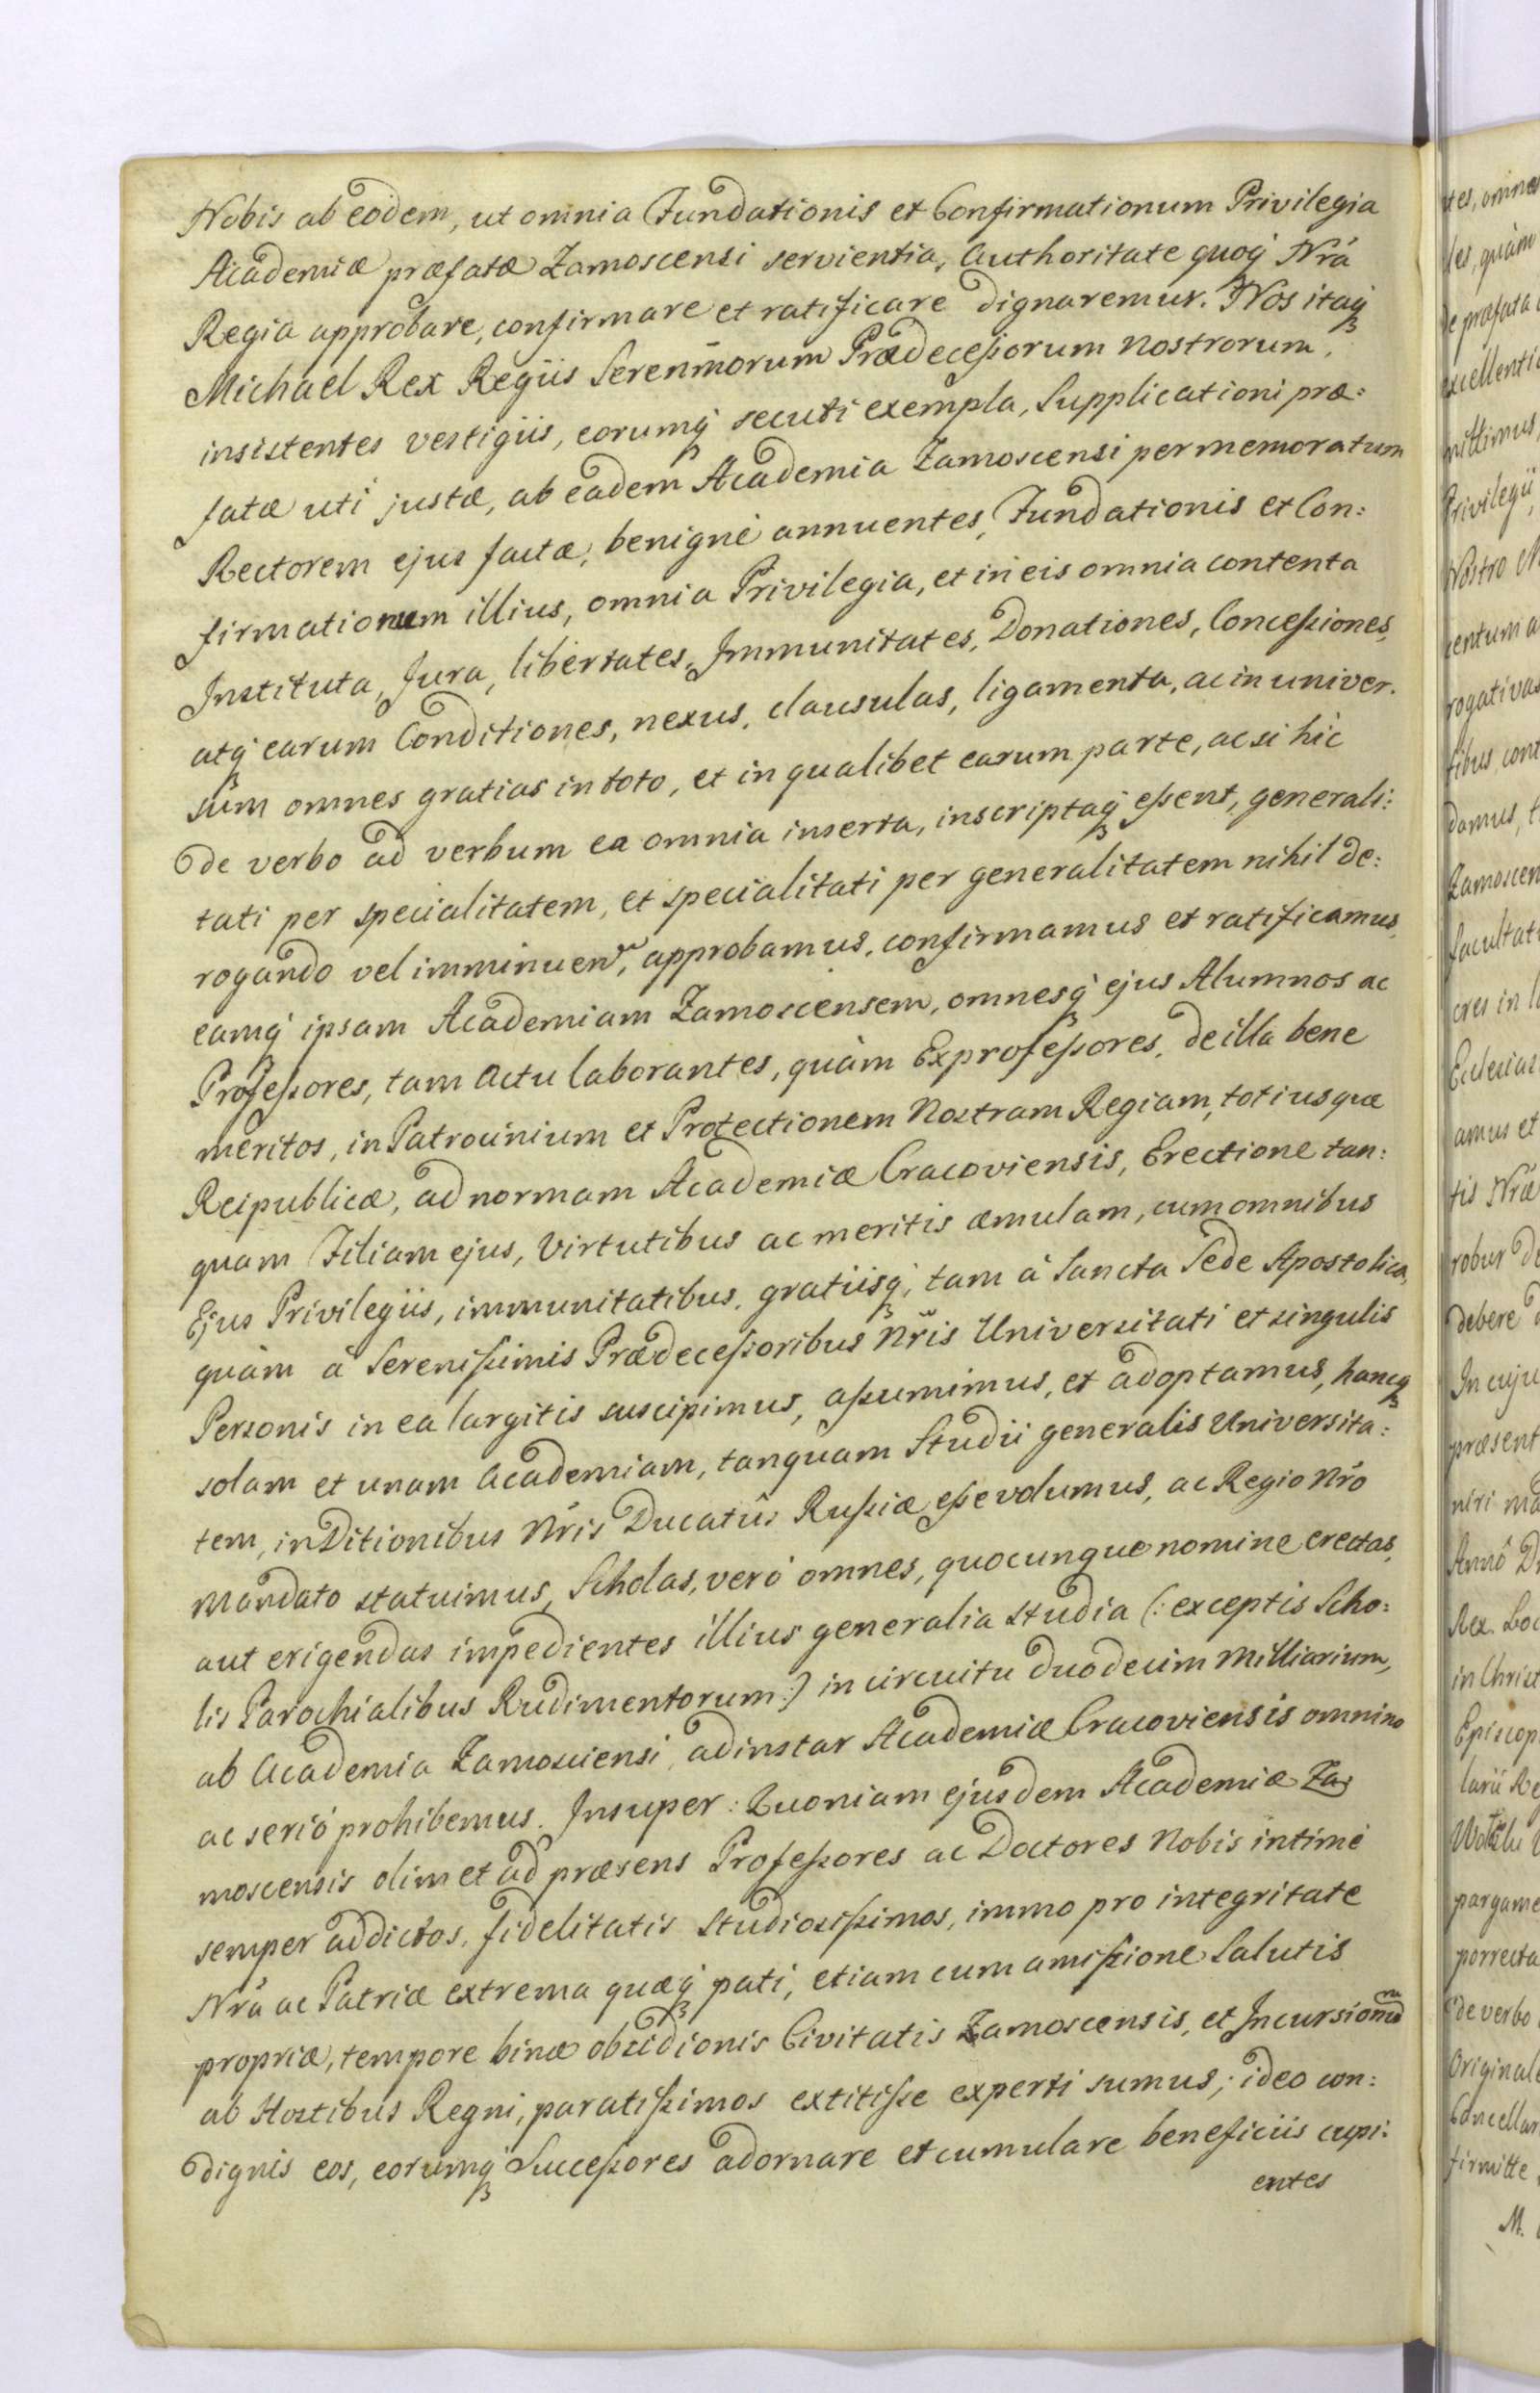 Nobis ab eodem, ut omnia Fundationis et Confirmationum Privilegia
Academiæ præfatæ Zamoscensi servientia, Authoritate quoq́ Nr̃a
Regia approbare, confirmare et ratificare dignaremur. Nos itaq́
Michael Rex Regiis Seren̄morum Prædeceßorum Nostrorum,
insistentes vestigiis, eorumq́ secuti exempla, Supplicationi præ:
fatæ uti justæ, ab eadem Academia Zamoscensi per memoratum
Rectorem ejus factæ, benignè annuentes, Fundationis et Con:
firmationum illius, omnia Privilegia, et in eis omnia contenta
Instituta, Jura, libertates, Immunitates, Donationes, Conceßiones,
atq́ earum Conditiones, nexus, clausulas, ligamenta, ac in univer.
sum omnes gratias in toto, et in qualibet earum parte, ac si hìc
de verbo ad verbum ea omnia inserta, inscriptaq́ eßent, generali:
tati per specialitatem, et specialitati per generalitatem nihil de:
rogando vel imminuen̄, approbamus, confirmamus et ratificamus,
eamq́ ipsam Academiam Zamoscensem, omnesq́ ejus Alumnos ac
Profeßores, tam Actu laborantes, quàm Exprofeßores, de illa bene
meritos, in Patrocinium et Protectionem Nostram Regiam, totiusque
Reipublicæ, ad normam Academiæ Cracoviensis, Erectione tan:
quam Filiam ejus, Virtutibus ac meritis æmulam, cum omnibus
Ejus Privilegiis, immunitatibus, gratiisq́, tam à Sancta Sede Apostolica,
quàm à Serenißimis Prædeceßoribus Nr̃is Universitati et singulis
Personis in ea largitis suscipimus, aßumimus, et adoptamus, hancq́
solam et unam Academiam, tanquam Studii generalis Universita:
tem, in Ditionibus Nr̃is Ducatûs Rußiæ eße volumus, ac Regio Nr̃o
Mandato statuimus, Scholas, verò omnes, quocunque nomine erectas,
aut erigendas impedientes illius generalia Studia (: exceptis Scho:
lis Parochialibus Rudimentorum:) in circuitu duodecim Milliarium,
ab Academia Zamosciensi, ad instar Academiæ Cracoviensis omnino
ac seriò prohibemus. Insuper: Quoniam ejusdem Academiæ Za:
moscensis olim et ad præsens Profeßores ac Doctores Nobis intimè
semper addictos, fidelitatis Studiosißimos, immo pro integritate
Nr̃a ac Patriæ extrema quæq́ pati, etiam cum amißione Salutis
propriæ, tempore binæ obsidionis Civitatis Zamoscensis, et Incursionũ
ab Hostibus Regni, paratißimos extitiße experti sumus; ideo con:
dignis eos, eorumq́ Succeßores adornare et cumulare beneficiis cupi:
entes